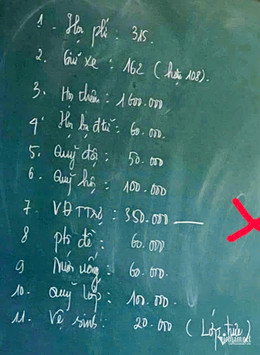 1. Học phí : 315.
2. Giữ xe : 162 (hoặc 108).
3. : 1600.000
4. : 60.000
5. Quỹ đội : 50.000
6. Quỹ hội : 100.000
7 VĐTTRợ : 350.000
8 phí đề : 60.000
9 Nước uống : 60.000
10. Quỹ lớp : 100.000
11. Vệ sinh : 20.000 (Lớp